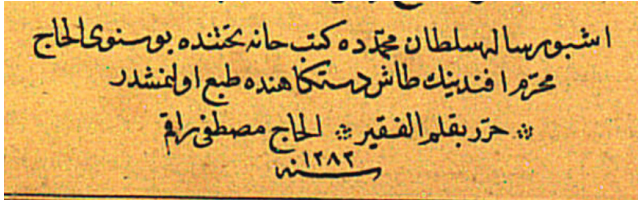 اشبو رساله سلطان محمدده كتبخانه تحتنده بوسنوى الحاج
محرم افندينك طاش دستكاهنده طبع اولنمشدر
حرر بقلم الفقير الحاج مصطفى راقم
سنه ١٢٨٣